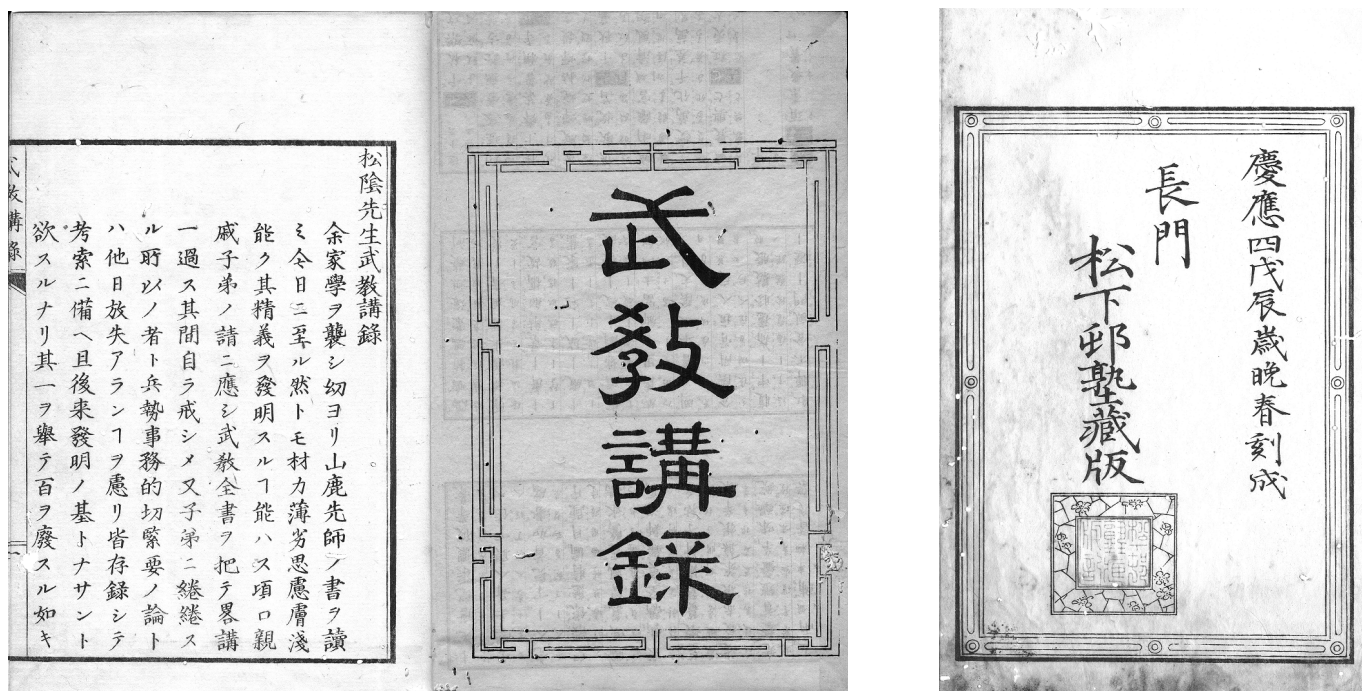 慶應四戊辰歳晩春刻成
長門
松下邨塾藏版
武教講錄
松陰先生武教講錄
余家學ヲ襲シ幼ヨリ山鹿先師ノ書ヲ讀
ミ今日ニ至ル然トモ材力薄劣思慮膚淺
能ク其精義ヲ發明スルヿ能ハス頃ロ親
戚子弟ノ請ニ應シ武教全書ヲ把テ畧講
一過ス其間自ラ戒シメ又子弟ニ綣綣ス
ル所以ノ者ト兵勢事務的切緊要ノ論ト
ハ他日放失アランヿヲ慮リ皆存録シテ
考索ニ備ヘ且後来發明ノ基トナサント
欲スルナリ其一ヲ舉テ百ヲ廢スル如キ
武教講錄
一